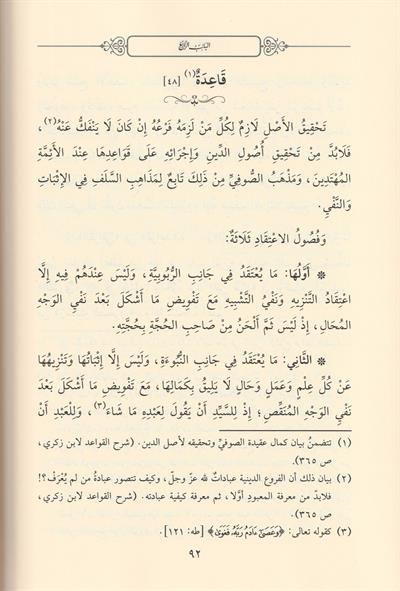 الباب الرابع
قَاعِدَةٌ (١) [٤٨]
تَحْقِيقُ الأَصْلِ لَازِمٌ لِكُلِّ مَنْ لَزِمَهُ فَرْعُهُ إِنْ كَانَ لَا يَنْفَكُّ عَنْهُ(٢)،
فَلَابُدَّ مِنْ تَحْقِيقِ أُصُولِ الدِّينِ وَإِجْرَائِهِ عَلَى قَوَاعِدِهَا عِنْدَ الأَئِمَّةِ
المُهْتَدِينَ، وَمَذْهَبُ الصُّوفِيِّ مِنْ ذَلِكَ تَابِعٌ لِمَذَاهِبِ السَّلَفِ فِي الإِثْبَاتِ
وَالنَّفْيِ.
وَفُصُولُ الاعْتِقَادِ ثَلَاثَةٌ:
* أَوَّلُهَا: مَا يُعْتَقَدُ فِي جَانِبِ الرُّبُوبِيَّةِ، وَلَيْسَ عِنْدَهُمْ فِيهِ إِلَّا
اعْتِقَادُ التَّنْزِيهِ وَنَفْيُ التَّشْبِيهِ مَعَ تَفْوِيضِ مَا أَشْكَلَ بَعْدَ نَفْيِ الوَجْهِ
المُحَالِ، إِذْ لَيْسَ ثَمَّ أَلْحَنُ مِنْ صَاحِبِ الحُجَّةِ بِحُجَّتِهِ.
* الثَّانِي: مَا يُعْتَقَدُ فِي جَانِبِ النُّبُوءَةِ، وَلَيْسَ إِلَّا إِثْبَاتُهَا وَتَنْزِيهُهَا
عَنْ كُلِّ عِلْمٍ وَعَمَلٍ وَحَالٍ لَا يَلِيقُ بِكَمَالِهَا، مَعَ تَفْوِيضِ مَا أَشْكَلَ بَعْدَ
نَفْيِ الوَجْهِ المُنَقِّصِ؛ إِذْ لِلسَّيِّدِ أَنْ يَقُولَ لِعَبْدِهِ مَا شَاءَ(٣)، وَلِلْعَبْدِ أَنْ
(١) تتضمنُ بيان كمال عقيدة الصوفيِّ وتحقيقه لأصل الدين. (شرح القواعد لابن زكري،
ص ٣٦٥).
(٢) بيان ذلك أن الفروع الدينية عباداتٌ لله عزّ وجلّ، وكيف تتصور عبادة من لم يُعْرَف؟!
فلابدّ من معرفة المعبود أوّلا، ثم معرفة كيفية عبادته. (شرح القواعد لابن زكري،
ص ٣٦٥).
(٣) كقوله تعالى: ﴿وَعَصَىٰ ءَادَمُ رَبَّهُۥ فَغَوَىٰ﴾ [طه: ١٢١].
٩٢